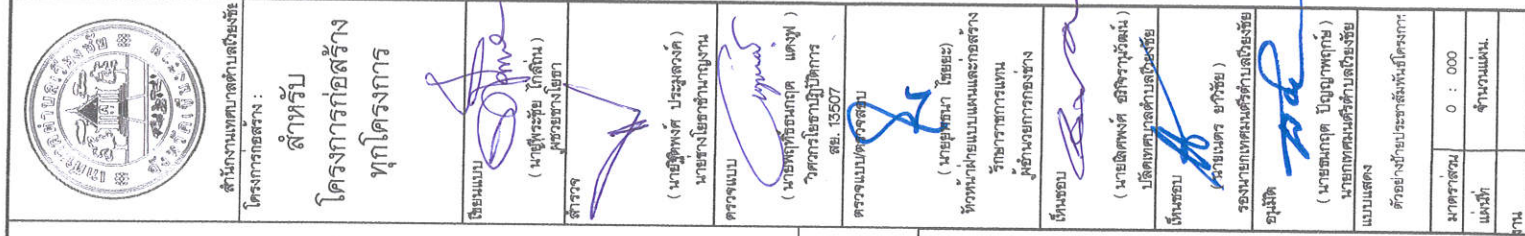 สำนักงานเทศบาลตำบลเวียงชัย
โครงการก่อสร้าง :
สำหรับ
โครงการก่อสร้าง
ทุกโครงการ
เขียนแบบ
( นายพีระชัย ใกล้ถิ่น )
ผู้ช่วยช่างโยธา
สำรวจ
( นายฐิติพงศ์ ประมูลวงค์ )
นายช่างโยธาชำนาญงาน
ตรวจแบบ
( นายพฤทธิ์ธนกฤต แดงฟู )
วิศวกรโยธาปฏิบัติการ
สย. 13507
ตรวจแบบ/ตรวจสอบ
หัวหน้าฝ่ายแบบแผนและก่อสร้าง
รักษาราชการแทน
ผู้อำนวยการกองช่าง
เห็นชอบ
ปลัดเทศบาลตำบลเวียงชัย
เห็นชอบ
( นายเนตร ยาวิชัย )
รองนายกเทศมนตรีตำบลเวียงชัย
อนุมัติ
( นายธนกฤต ปัญญาพฤกษ์ )
นายกเทศมนตรีตำบลเวียงชัย
แบบแสดง
ตัวอย่างป้ายประชาสัมพันธ์โครงการ
มาตราส่วน 0 : 000
แผ่นที่ จำนวนแผ่น.